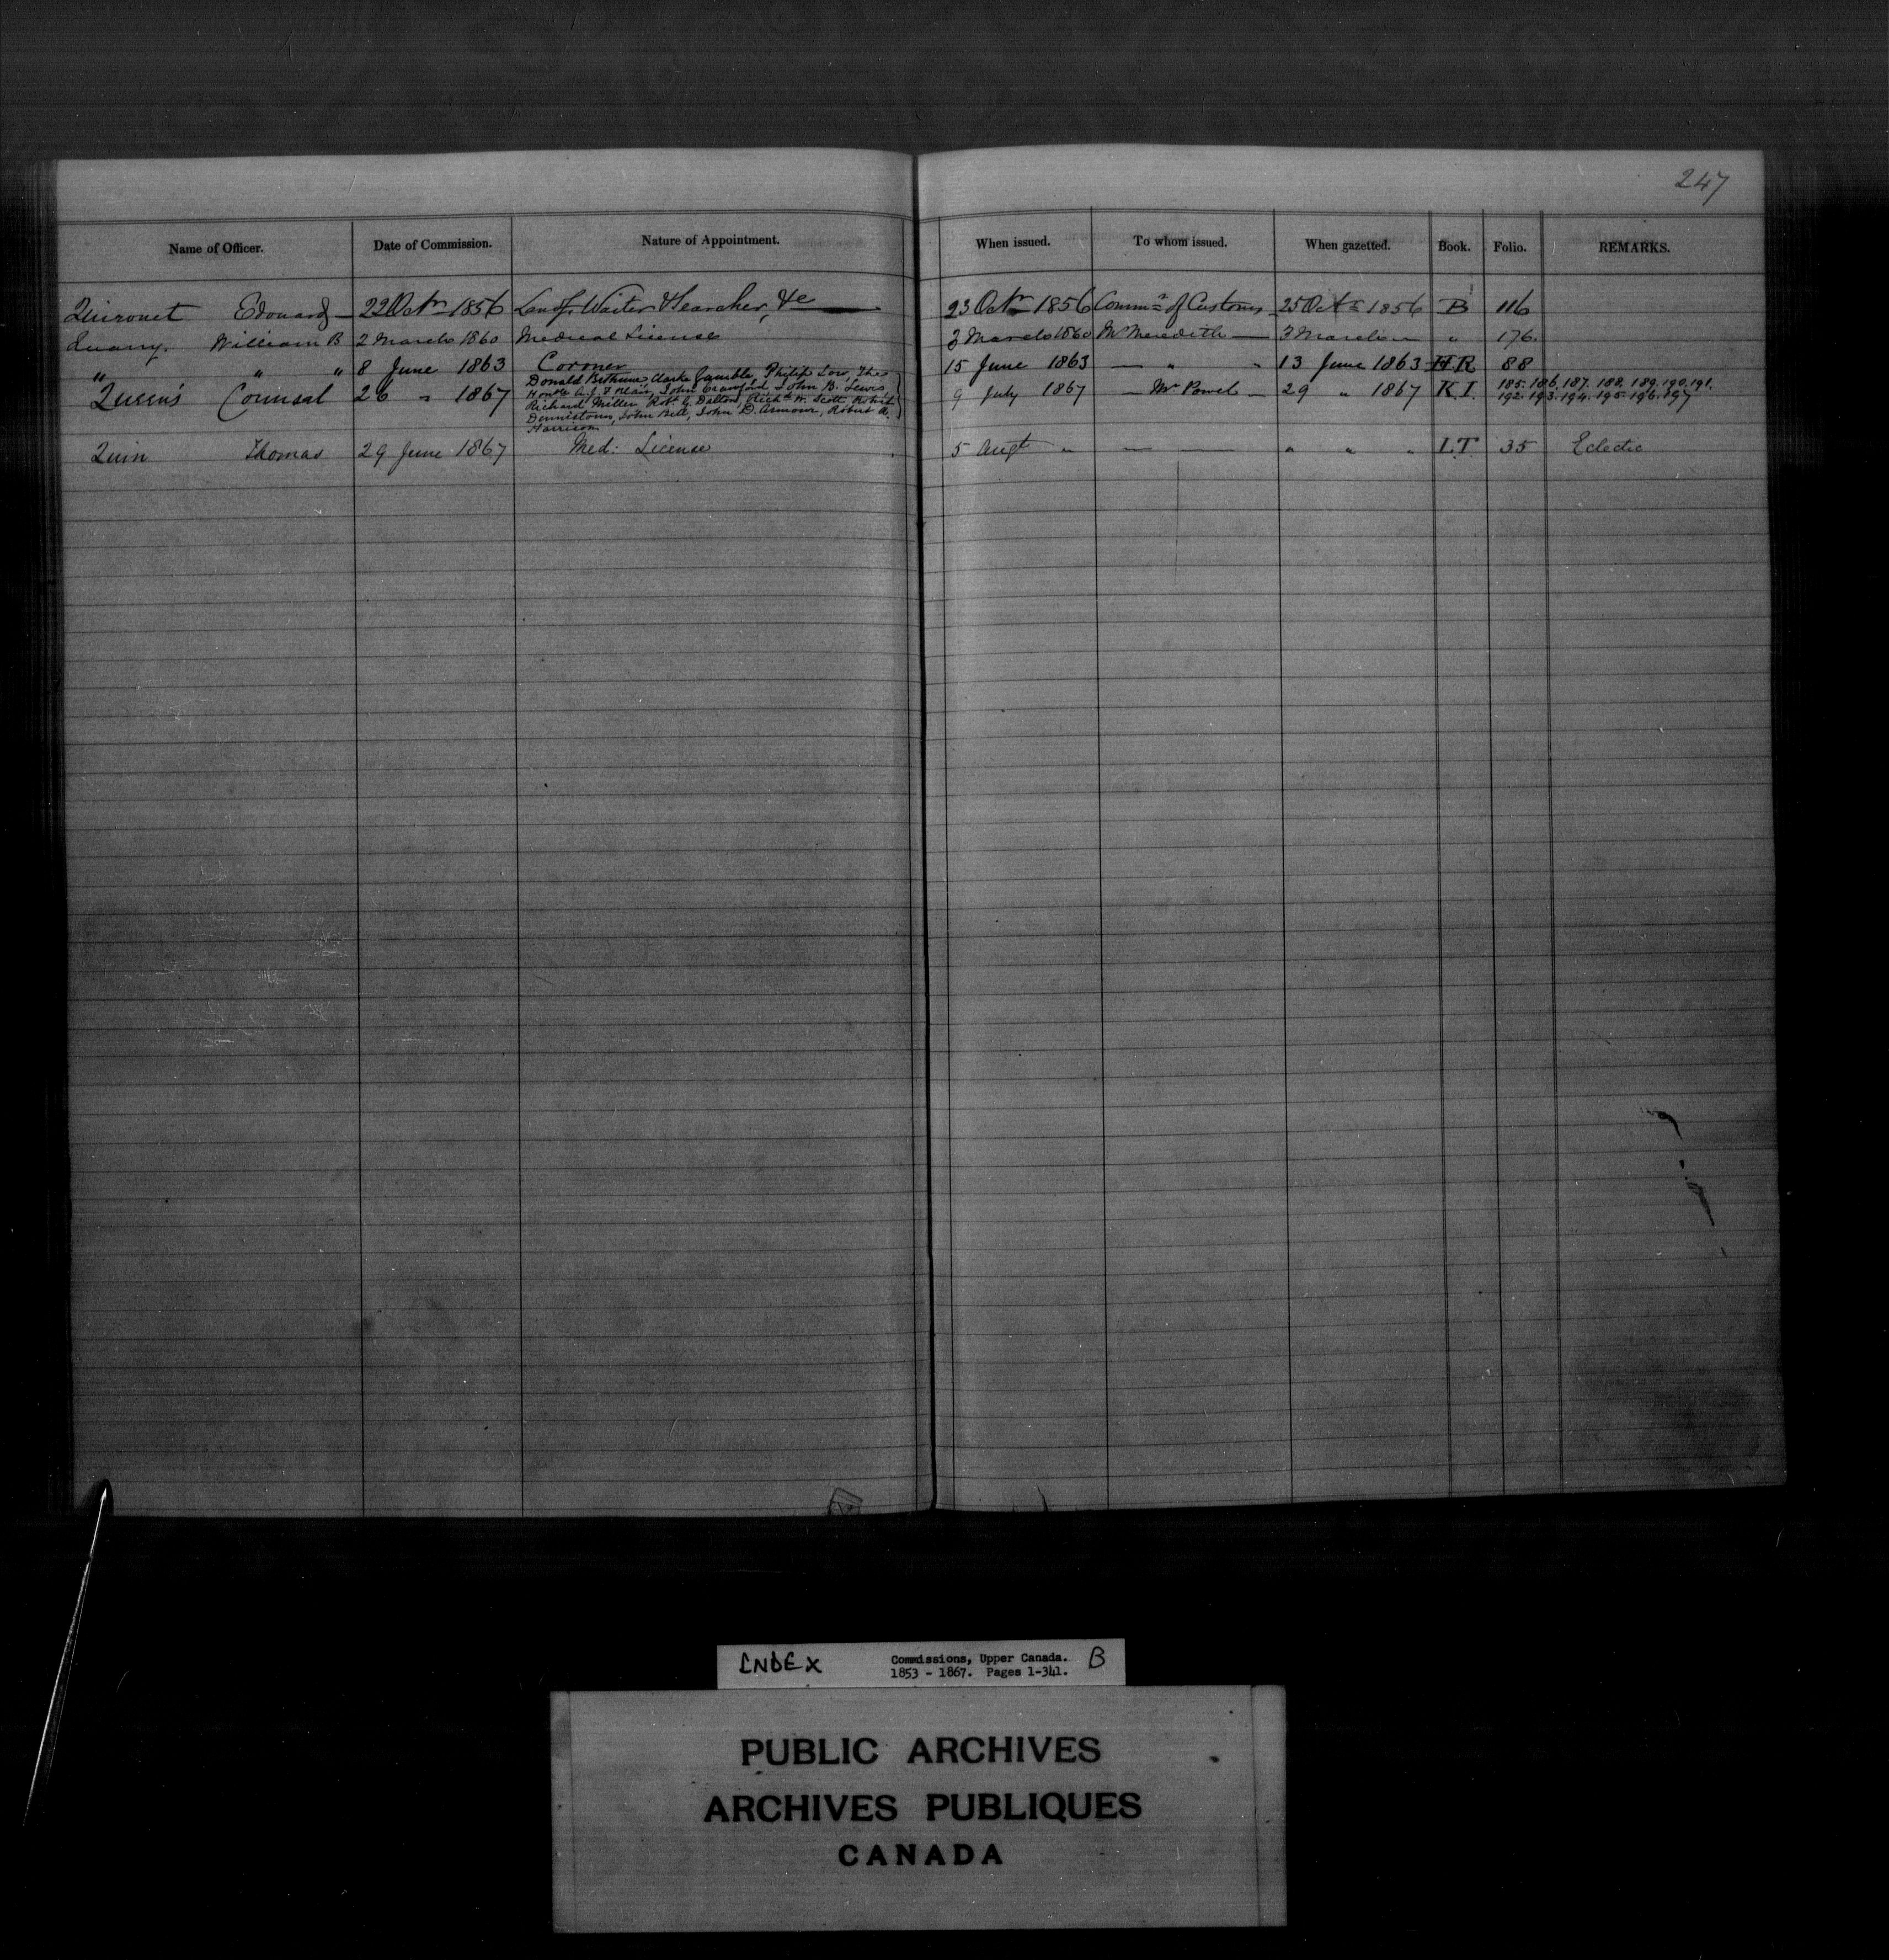 247
Name of Officer. Date of Commission. Nature of Appointment. When issued. To whom issued. When gazetted. Book. Folio. REMARKS.
Quironet Edouard — 22 Octr 1856 Landg. Waiter & Searcher, &c — 23 Octr 1856 Commr of Customs — 25 Octr 1856 B 116
Quarry. William B 2 March 1860 Medical License 3 March 1860 Mr Meredith — 3 March " " 176.
" " " 8 June 1863 Coroner 15 June 1863 — " " 13 June 1863 H.R 88
Queen's Counsel 26 " 1867 Donald Bethune, Clarke Gamble, Philip Low, The 9 July 1867 — Mr Powel — 29 " 1867 K I. 185. 186. 187. 188. 189. 190. 191.
Honble John Crawford, John B. Lewis 192. 193. 194. 195. 196. 197
Richard Miller, Robt G. Dalton, Richd W. Scott, Robert
Dennistoun, John Bell, John D. Armour, Robert A.
Harrison
Quin Thomas 29 June 1867 Med: License 5 Augt " — — " " " I.T. 35 Eclectic
INDEX Commissions, Upper Canada. B
1853 - 1867. Pages 1-341.
PUBLIC ARCHIVES
ARCHIVES PUBLIQUES
CANADA